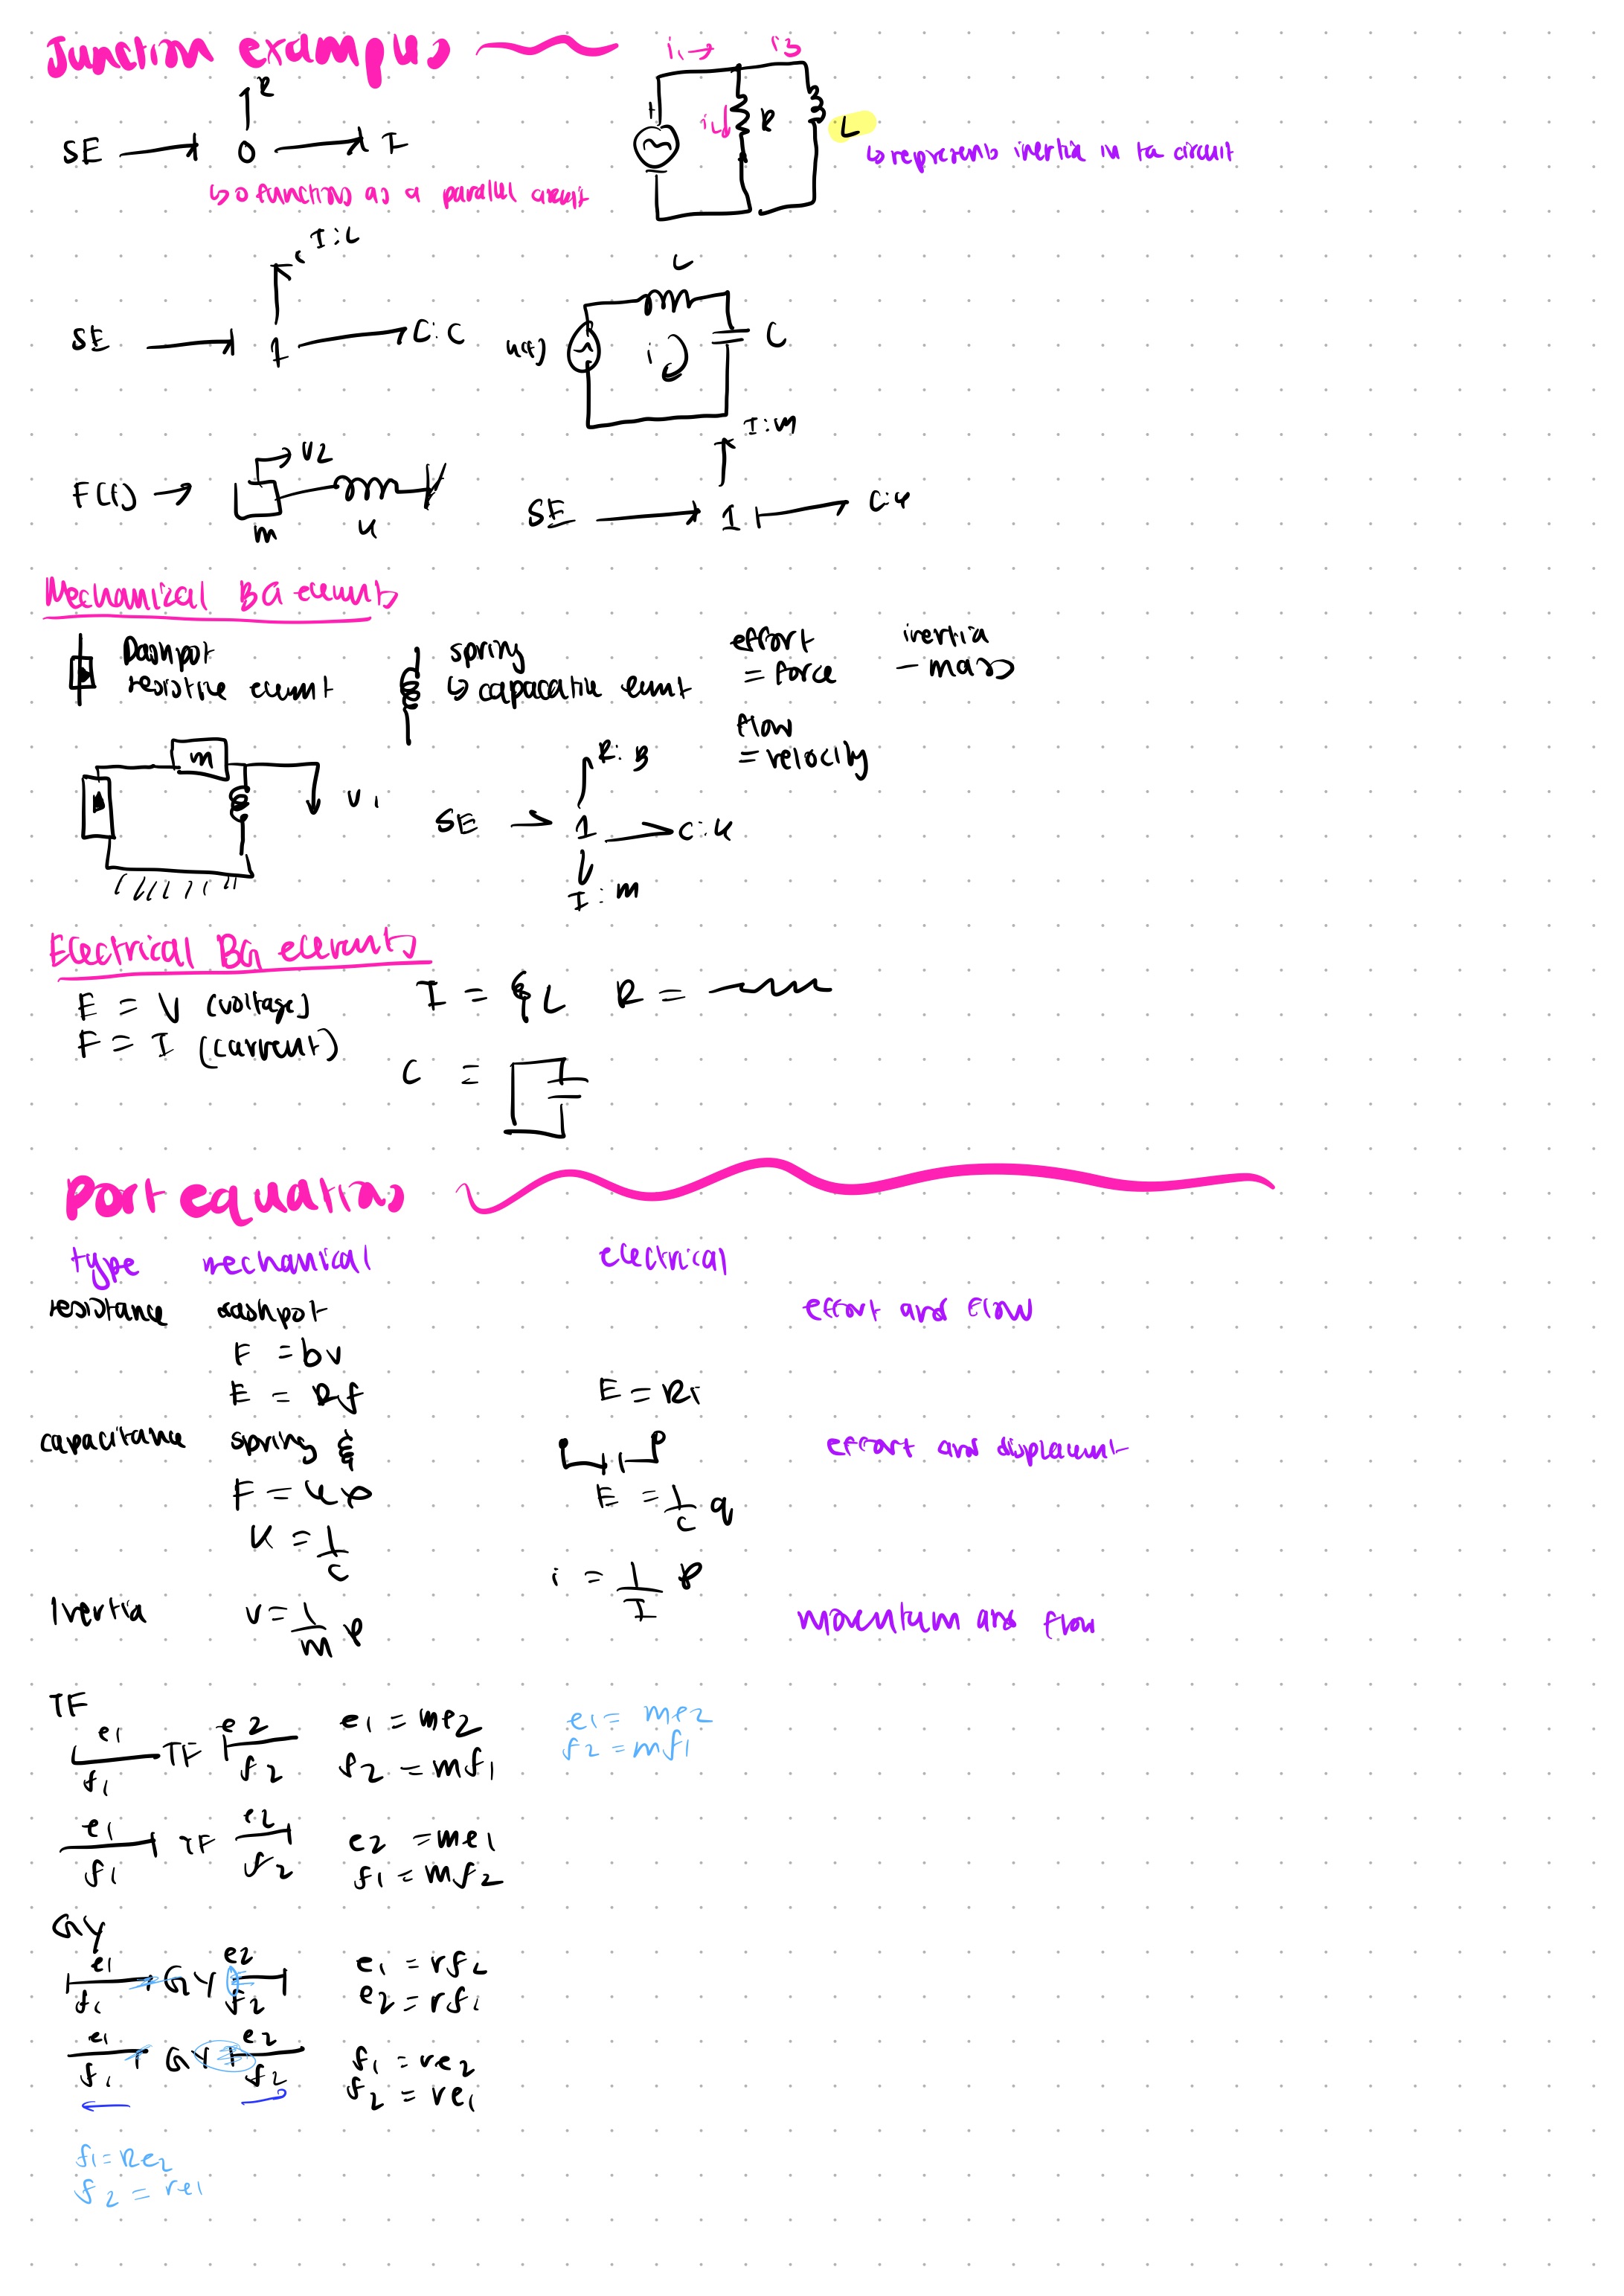 Junction examples
SE 0 I
R
↳ 0 functions as a parallel circuit
i1→ i3
+ i2 R L
↳ represents inertia in the circuit
I:L
SE 1 C:C
L
u(t) i C
F(t) → m v2 k
I:m
SE 1 C:k
Mechanical BG elements
Dashpot
resistive element
spring
↳ capacative element
effort
= force
inertia
- mass
flow
= velocity
m v1
R:B
SE → 1 → C:k
I:m
Electrical BG elements
E = V (voltage)
F = I (current)
I = L R =
C =
Port equations
type mechanical electrical
resistance dashpot effort and flow
F = bv
E = Rf E = Ri
capacitance spring effort and displacement
F = kx E = 1/c q
K = 1/c
i = 1/I P
Inertia v = 1/m p momentum and flow
TF
e1 TF e2 e1 = me2 e1 = me2
f1 f2 f2 = mf1 f2 = mf1
e1 TF e2 e2 = me1
f1 f2 f1 = mf2
GY
e1 GY e2 e1 = rf2
f1 f2 e2 = rf1
e1 GY e2 f1 = re2
f1 f2 f2 = re1
f1 = Re2
f2 = re1